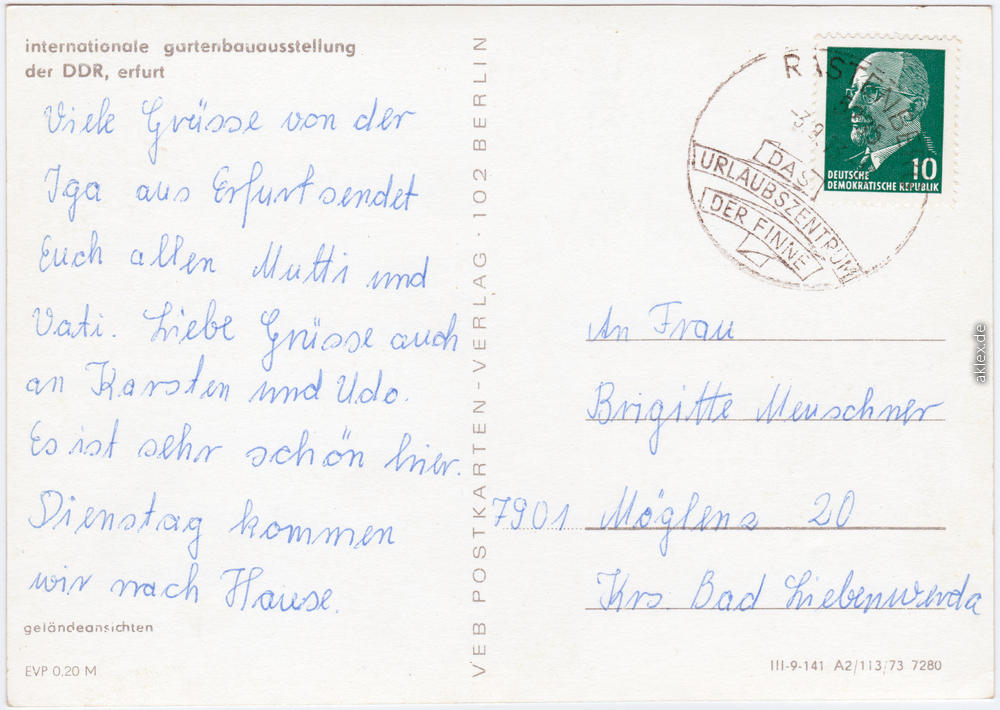 internationale gartenbauausstellung
der DDR, erfurt
Viele Grüsse von der
Iga aus Erfurt sendet
Euch allen Mutti und
Vati. Liebe Grüsse auch
an Karsten und Udo.
Es ist sehr schön hier.
Dienstag kommen
wir nach Hause.
geländeansichten
EVP 0,20 M
VEB POSTKARTEN-VERLAG · 102 BERLIN
DAS
URLAUBSZENTRUM
DER FINNE
10
DEUTSCHE
DEMOKRATISCHE REPUBLIK
An Frau
Brigitte Meuschner
7901 Möglenz 20
Krs. Bad Liebenwerda
III-9-141 A2/113/73 7280
aklex.de